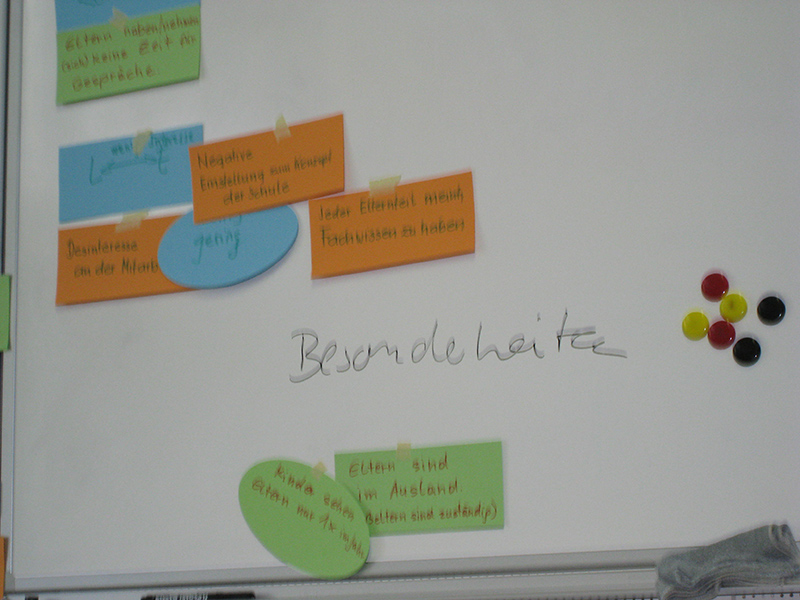 Eltern haben/nehmen
keine Zeit für
Gespräche
Negative
Einstellung zum Konzept
der Schule
Jeder Elternteil meint,
Fachwissen zu haben
Desinteresse
an der Mitarb
gering
Besonderheiten
Eltern sind
im Ausland
(Eltern sind zuständig)
Kinder sehen
Eltern nur 1x im Jahr